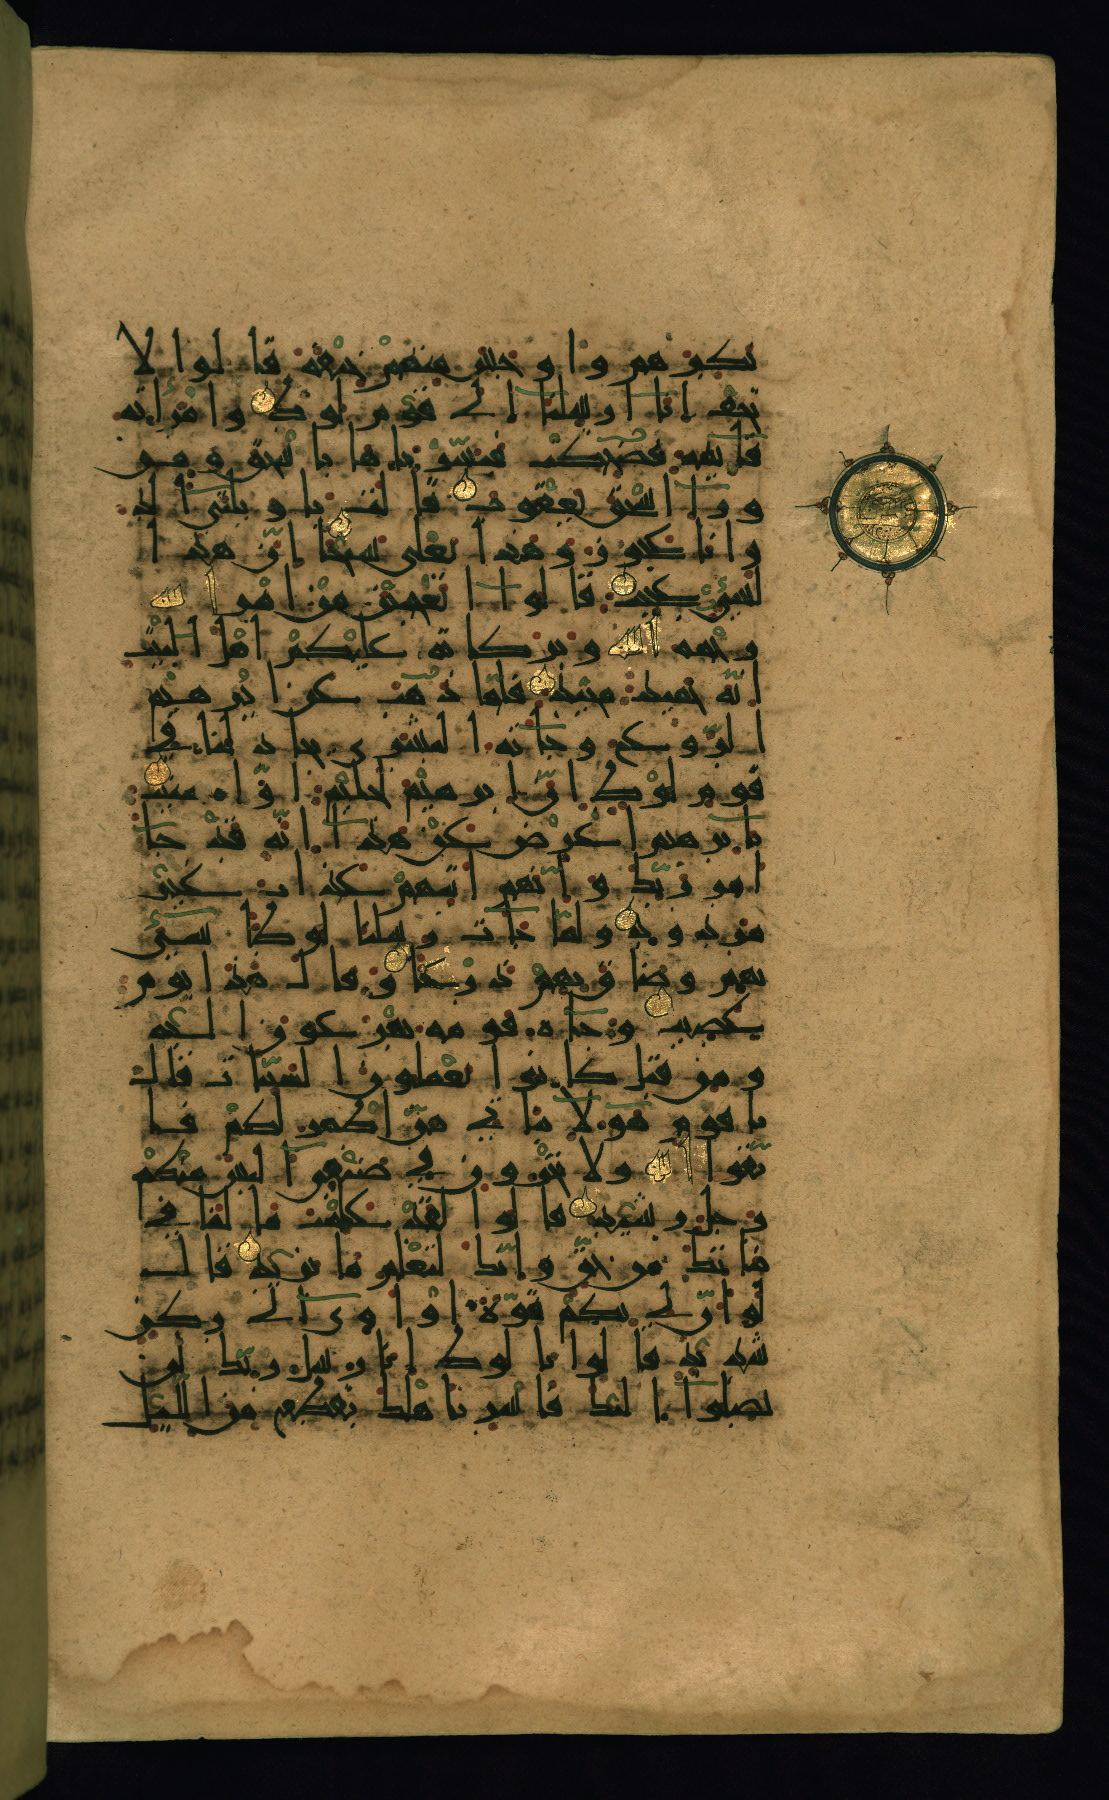 نكرهم واوجس منهم خيفة قالوا لا
تخف انا ارسلنا الى قوم لوط وامراته
قائمة فضحكت فبشرناها باسحق ومن
ورا اسحق يعقوب قالت يا ويلتى االد
وانا عجوز وهذا بعلى شيخا ان هذا
لشئ عجيب قالوا اتعجبين من امر الله
رحمة الله وبركاته عليكم اهل البيت
انه حميد مجيد فلما ذهب عن ابرهيم
الروع وجاته البشرى يجادلنا فى
قوم لوط ان ابرهيم لحليم اواه منيب
يا ابرهيم اعرض عن هذا انه قد جا
امر ربك وانهم اتيهم عذاب غير
مردود ولما جات رسلنا لوطا سئ
بهم وضاق بهم ذرعا وقال هذا يوم
عصيب وجاه قومه يهرعون اليه
ومن قبل كانوا يعملون السيئات قال
يا قوم هولا بناتى هن اطهر لكم فا
تقوا الله ولا تخزون فى ضيفى اليس منكم
رجل رشيد قالوا لقد علمت ما لنا فى
بناتك من حق وانك لتعلم ما نريد قال
لو ان لى بكم قوة او اوى الى ركن
شديد قالوا يا لوط انا رسل ربك لن
يصلوا اليك فاسر باهلك بقطع من اليل